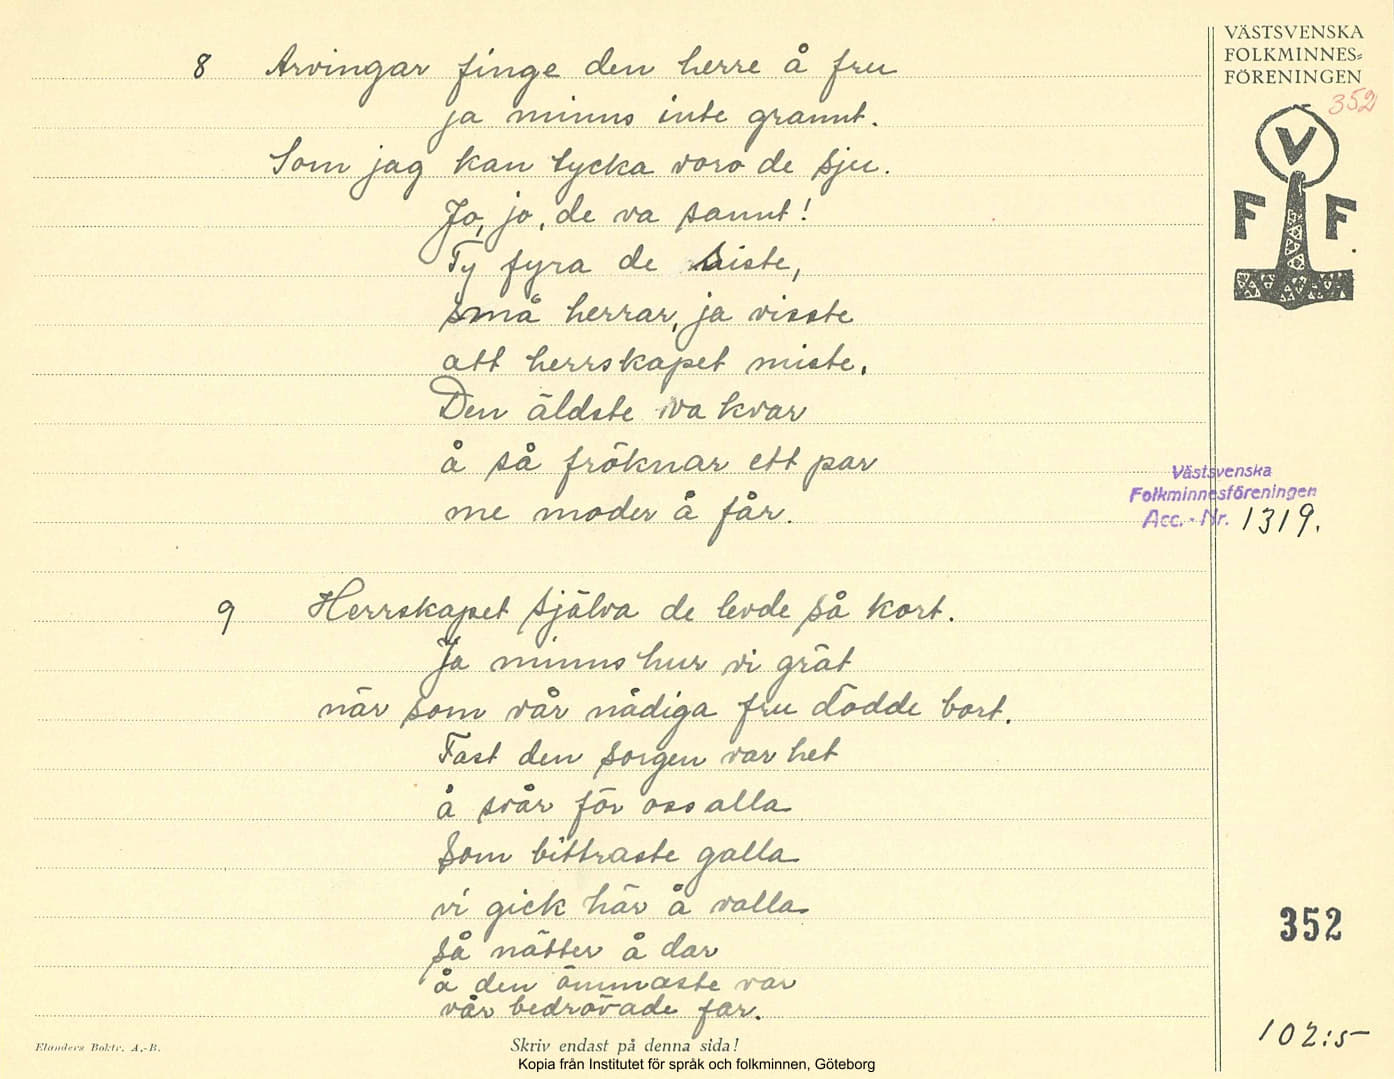 8 Arvingar finge den herre å fru
ja minns inte grannt.
Som jag kan tycka voro de sju.
Jo, jo, de va sannt!
Ty fyra de siste,
små herrar, ja visste
att herrskapet miste.
Den äldste va kvar
å så fröknar ett par
me moder å får.
9 Herrskapet själva de levde så kort.
Ja minns hur vi grät
när som vår nådiga fru dödde bort.
Fast den sorgen var het
å svår för oss alla
som bittraste galla
vi gick här å valla
så nätter å dar
å den ömmaste var
vår bedrövade far.
VÄSTSVENSKA
FOLKMINNES=
FÖRENINGEN
352
V
F F
Västsvenska
Folkminnesföreningen
Acc. - Nr. 1319.
352
102:5
Elanders Boktr. A.-B.
Skriv endast på denna sida!
Kopia från Institutet för språk och folkminnen, Göteborg